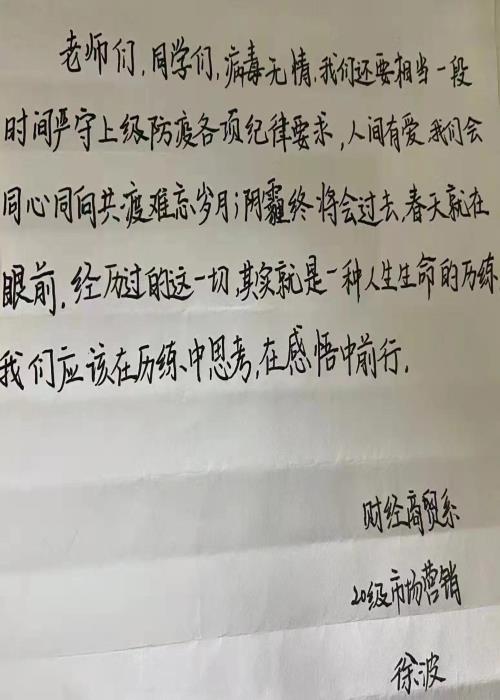 老师们，同学们，病毒无情，我们还要相当一段
时间严守上级防疫各项纪律要求，人间有爱，我们会
同心同向共渡难忘岁月；阴霾终将会过去，春天就在
眼前。经历过的这一切，其实就是一种人生生命的历练
我们应该在历练中思考，在感悟中前行。
财经商贸系
20级市场营销
徐波